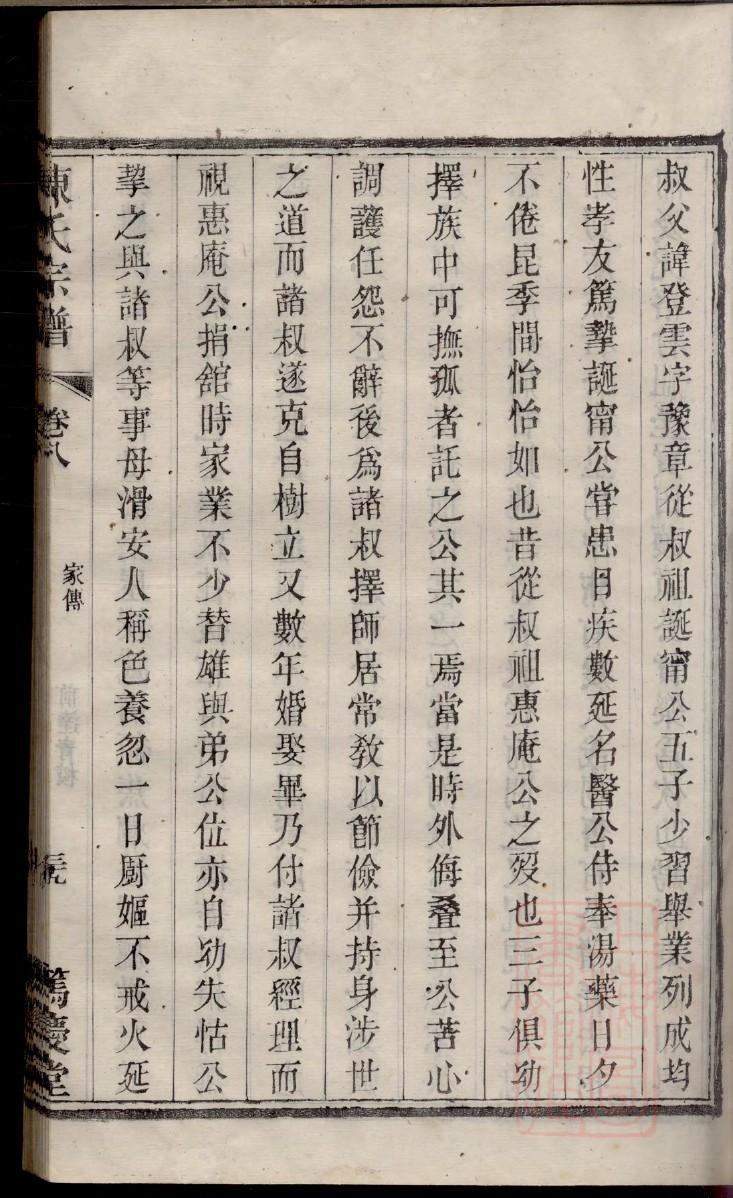 叔父諱登雲字豫章從叔祖誕甯公五子少習舉業列成均
性孝友篤摯誕甯公嘗患目疾數延名醫公侍奉湯藥日夕
不倦昆季間怡怡如也昔從叔祖惠庵公之歿也三子俱幼
擇族中可撫孤者託之公其一焉當是時外侮叠至公苦心
調護任怨不辭後爲諸叔擇師居常教以節儉并持身涉世
之道而諸叔遂克自樹立又數年婚娶畢乃付諸叔經理而
視惠庵公捐舘時家業不少替雄與弟公位亦自幼失怙公
挈之與諸叔等事母滑安人稱色養忽一日厨嫗不戒火延
陳氏宗譜
卷八
家傳
篤慶堂